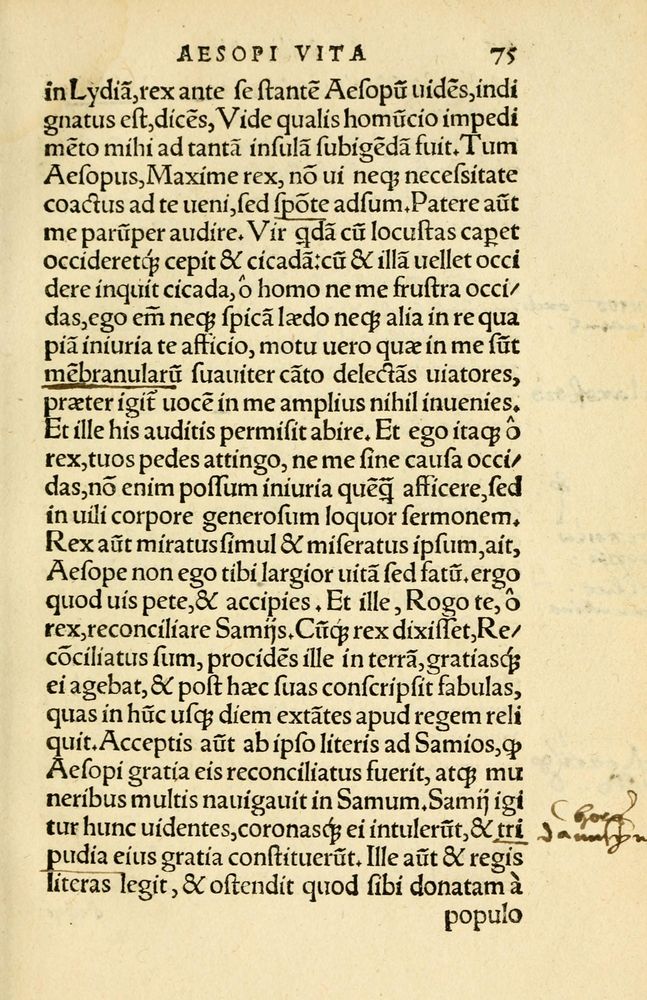 AESOPI VITA 75
in Lydiã,rex ante se ſtantẽ Aeſopũ uidẽs,indi
gnatus eſt,dicẽs,Vide qualis homũcio impedi
mẽto mihi ad tantã inſulã ſubigẽdã fuit.Tum
Aeſopus,Maxime rex, nõ ui neqꝫ neceſsitate
coactus ad te ueni,ſed ſpõte adſum.Patere aũt
me parũper audire.Vir qdã cũ locuſtas capet
occideretqꝫ cepit & cicadã:cũ & illã uellet occi
dere inquit cicada,ô homo ne me fruſtra occi/
das,ego em̃ neqꝫ ſpicã lædo neqꝫ alia in re qua
piã iniuria te afficio, motu uero quæ in me ſũt
mẽbranularũ ſuauiter cãto delectãs uiatores,
præter igit̃ uocẽ in me amplius nihil inuenies.
Et ille his auditis permiſit abire. Et ego itaqꝫ ô
rex,tuos pedes attingo, ne me ſine cauſa occi/
das,nõ enim poſſum iniuria quẽq̃ afficere,ſed
in uili corpore generoſum loquor ſermonem.
Rex aũt miratus ſimul & miſeratus ipſum,ait,
Aeſope non ego tibi largior uitã ſed fatũ.ergo
quod uis pete,& accipies . Et ille , Rogo te, ô
rex,reconciliare Samijs.Cũqꝫ rex dixiſſet,Re/
cõciliatus ſum, procidẽs ille in terrã,gratiasqꝫ
ei agebat,& poſt hæc ſuas conſcripſit fabulas,
quas in hũc uſqꝫ diem extãtes apud regem reli
quit.Acceptis aũt ab ipſo literis ad Samios,ꝙ
Aeſopi gratia eis reconciliatus fuerit, atqꝫ mu
neribus multis nauigauit in Samum.Samij igi
tur hunc uidentes,coronasqꝫ ei intulerũt,& tri
pudia eius gratia conſtituerũt. Ille aũt & regis
literas legit , & oſtendit quod ſibi donatam à
populo